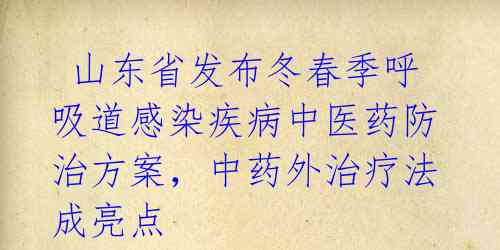 山东省发布冬春季呼
吸道感染疾病中医药防
治方案，中药外治疗法
成亮点